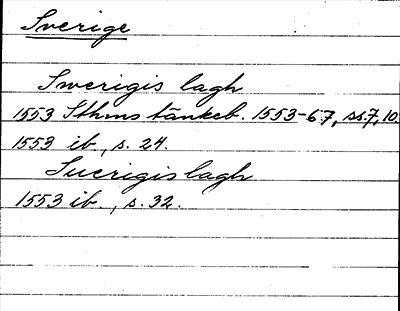 Sverige
Swerigis lagh
1553 Sthms tänkeb. 1553-67, ss.7, 10.
1553 ib., s. 24.
Suerigis lagh
1553 ib., s. 32.